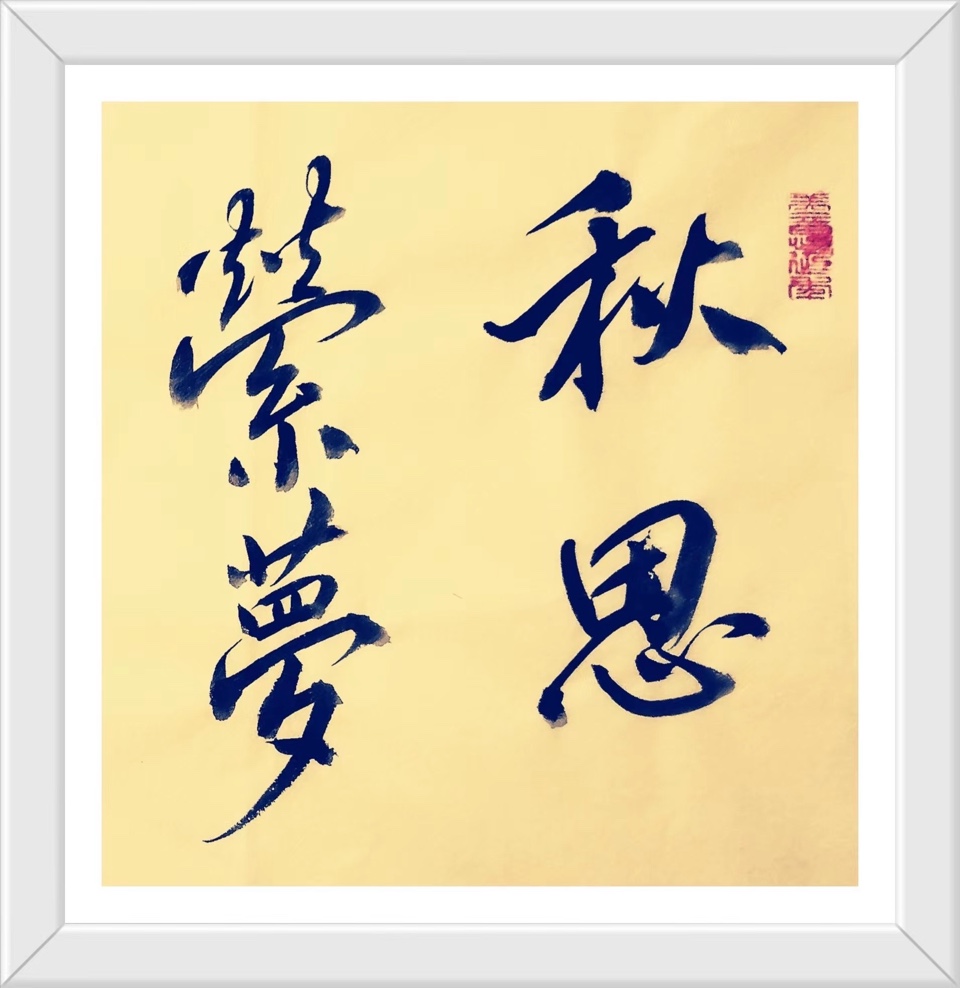 秋思
縈夢